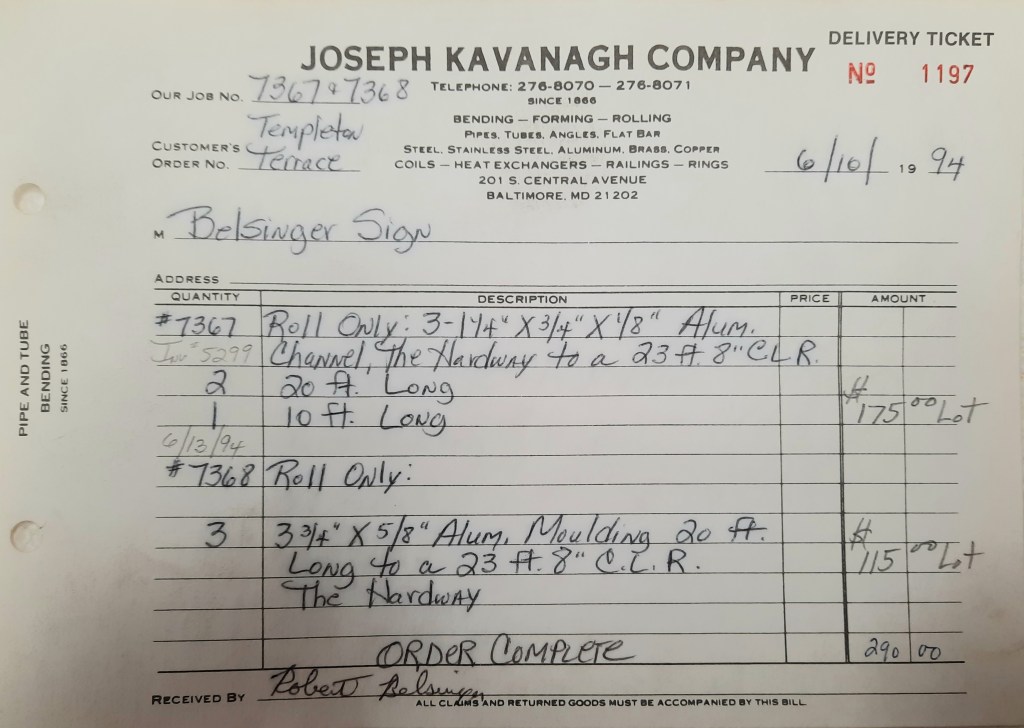 DELIVERY TICKET
JOSEPH KAVANAGH COMPANY
Nº 1197
OUR JOB NO. 7367 & 7368
TELEPHONE: 276-8070 — 276-8071
SINCE 1866
BENDING — FORMING — ROLLING
PIPES, TUBES, ANGLES, FLAT BAR
CUSTOMER'S ORDER NO. Templeton Terrace
STEEL, STAINLESS STEEL, ALUMINUM, BRASS, COPPER
COILS — HEAT EXCHANGERS — RAILINGS — RINGS
6/10/ 19 94
201 S. CENTRAL AVENUE
BALTIMORE, MD 21202
M Belsinger Sign
ADDRESS
QUANTITY DESCRIPTION PRICE AMOUNT
#7367 Roll Only: 3-1/4" X 3/4" X 1/8" Alum.
Inv #5299 Channel, The Hardway to a 23 ft. 8" C.L.R.
2 20 ft. Long
1 10 ft. Long $175 00 Lot
6/13/94
#7368 Roll Only:
3 3 3/4" X 5/8" Alum. Moulding 20 ft.
Long to a 23 ft. 8" C.L.R. $115 00 Lot
The Hardway
ORDER COMPLETE 290 00
RECEIVED BY Robert Belsinger
ALL CLAIMS AND RETURNED GOODS MUST BE ACCOMPANIED BY THIS BILL
PIPE AND TUBE
BENDING
SINCE 1866